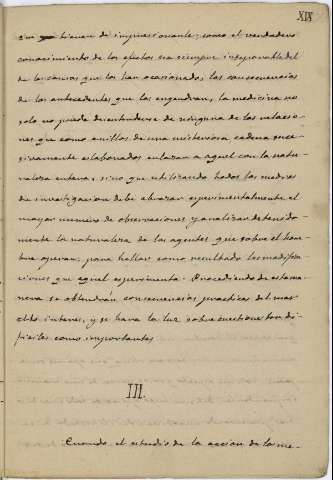 XIX
tienen de impresionante; como el verdadero
conocimiento de los efectos sea siempre inseparable del
de las causas que los han ocasionado, las consecuencias
de los antecedentes que las engendran, la medicina no
solo no puede desentenderse de ninguna de las relacio-
nes que como anillos de una misteriosa cadena suce-
sivamente eslabonados enlazan a aquel con la natu-
raleza entera, sino que utilizando todos los medios
de investigacion debe abrazar experimentalmente el
mayor numero de observaciones y analizar detenida-
mente la naturaleza de los agentes que sobre el hom-
bre operan, para hallar como resultado las modifica-
ciones que aquel esperimenta. Procediendo de esta ma-
nera se obtendran consecuencias practicas del mas
alto interes, y se hara la luz sobre cuestiones tan di-
ficiles como importantes
III.
Cuando el estudio de la accion de los me-